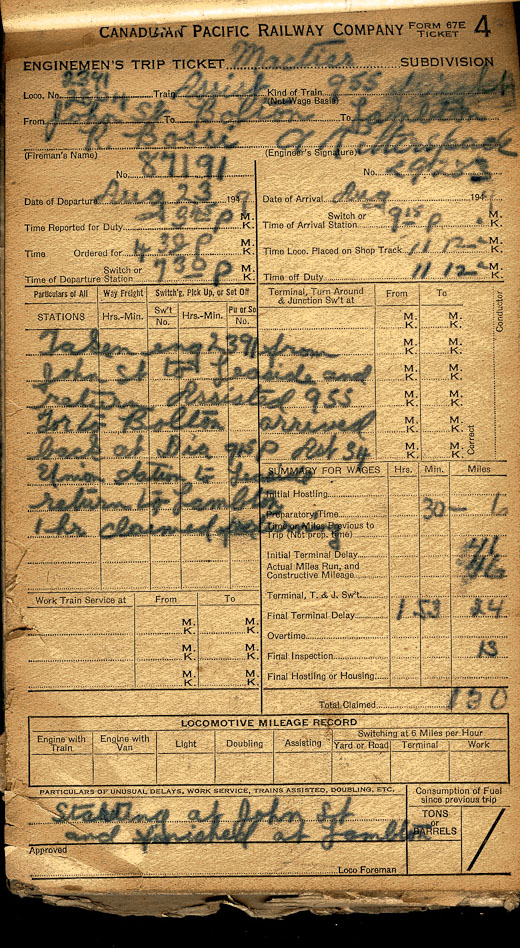 CANADIAN PACIFIC RAILWAY COMPANY FORM 67E TICKET 4
ENGINEMEN'S TRIP TICKET SUBDIVISION
2391
Loco. No. Train Kind of Train 955
(Not Wage Basis)
From John St To To Lambton
R
(Fireman's Name) (Engineer's Signature)
No. 87191 No.
Date of Departure Aug 23 194 Date of Arrival Aug 194
Time Reported for Duty P M. K. Switch or Time of Arrival Station 9 15 P M. K.
Time Ordered for 4 30 P M. K. Time Loco. Placed on Shop Track 11 12 M. K.
Switch or Time of Departure Station 7 30 P M. K. Time off Duty 11 12 M. K.
Particulars of All Way Freight Switch'g, Pick Up, or Set Off Terminal, Turn Around & Junction Sw't at From To
STATIONS Hrs.-Min. Sw't No. Hrs.-Min. Pu or So No. M. K. M. K.
Conductor
Correct
Taken eng 2391 from M. K. M. K.
John St to Leaside and M. K. M. K.
return Assisted 955 M. K. M. K.
to Bolton arrived M. K. M. K.
at 915 P 34 M. K. M. K.
Union station to Leaside SUMMARY FOR WAGES Hrs. Min. Miles
return to Lambton Initial Hostling
1 hr claimed Preparatory Time 30 — 6
Time or Miles Previous to Trip (Not prop. time)
Initial Terminal Delay
Actual Miles Run, and Constructive Mileage 46
Work Train Service at From To Terminal, T. & J. Sw't.
M. K. M. K. Final Terminal Delay 1 53 24
Overtime
M. K. M. K. Final Inspection 13
M. K. M. K. Final Hostling or Housing
Total Claimed 130
LOCOMOTIVE MILEAGE RECORD
Engine with Train Engine with Van Light Doubling Assisting Switching at 6 Miles per Hour
Yard or Road Terminal Work
PARTICULARS OF UNUSUAL DELAYS, WORK SERVICE, TRAINS ASSISTED, DOUBLING, ETC. Consumption of Fuel since previous trip
at John St TONS or BARRELS
and finished at Lambton
Approved
Loco Foreman